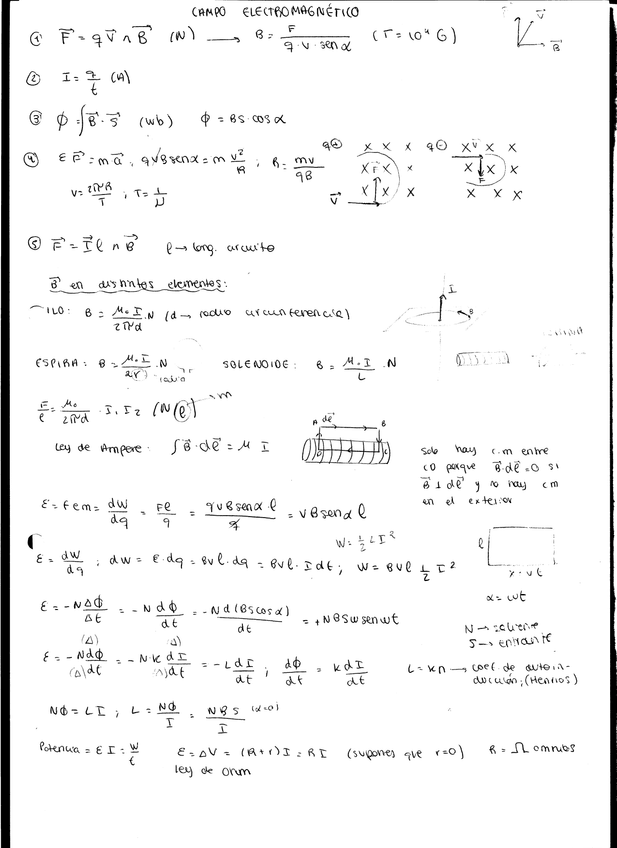 CAMPO ELECTROMAGNÉTICO
① F⃗ = q V⃗ ∧ B⃗ (N) → B = F / (q · v · sen α) (T = 10⁴ G) V⃗ B⃗
② I = q/t (A)
③ Φ = ∫ B⃗ · S⃗ (wb) Φ = BS · cos α
④ Σ F⃗ = m a⃗ ; qVB sen α = m v²/R ; R = mv/qB q⊕ q⊖
V = 2πR/T ; T = 1/ν V⃗ F
⑤ F⃗ = I⃗ ℓ ∧ B⃗ ℓ → long. circuito
B⃗ en distintos elementos:
ILO: B = μ₀ I / 2πd · N (d → radio circunferencia) I B
ESPIRA: B = μ₀ I / 2r · N radio SOLENOIDE: B = μ₀ I / L · N
F/ℓ = μ₀ / 2πd · I₁ I₂ (N/ℓ) → m
Ley de Ampere: ∫ B⃗ · dℓ⃗ = μ I A dℓ⃗ B
solo hay c.m entre
CD porque B⃗·dℓ⃗ = 0 si
B⃗ ⊥ dℓ⃗ y no hay cm
en el exterior
ε = fem = dW/dq = Fℓ/q = qVB sen α · ℓ / q = VB sen α ℓ
W = ½ L I²
ε = dW/dq ; dW = ε · dq = BVℓ · dq = BVℓ · I dt ; W = BVℓ ½ I² ℓ x = vt
α = ωt
ε = -N ΔΦ/Δt = -N dΦ/dt = -N d(BS cos α)/dt = +NBSω sen ωt
N → saliente
S → entrante
(Δ) (Δ)
ε = -N dΦ/dt = -N · k dI/dt = -L dI/dt ; dΦ/dt = k dI/dt L = kn → coef. de autoin-
(Δ) (Δ) ducción; (Henrios)
NΦ = LI ; L = NΦ/I = NBS/I (α=0)
Potencia = ε I = W/t ε = ΔV = (R+r) I = RI (supones que r=0) R = Ω omnios
Ley de Ohm